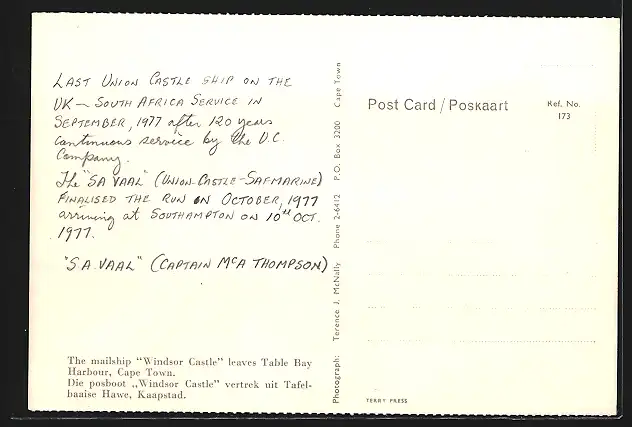 LAST UNION CASTLE SHIP ON THE
UK – SOUTH AFRICA SERVICE IN
SEPTEMBER, 1977 after 120 years
continuous service by the U.C.
Company.
The "SA VAAL" (UNION-CASTLE-SAFMARINE)
FINALISED THE RUN ON OCTOBER, 1977
arriving at SOUTHAMPTON ON 10th OCT.
1977.
"S.A. VAAL" (CAPTAIN McA THOMPSON)
The mailship "Windsor Castle" leaves Table Bay
Harbour, Cape Town.
Die posboot „Windsor Castle" vertrek uit Tafel-
baaise Hawe, Kaapstad.
Photograph: Terence J. McNally Phone 2-6412 P.O. Box 3200 Cape Town
Post Card / Poskaart
Ref. No.
173
TERRY PRESS